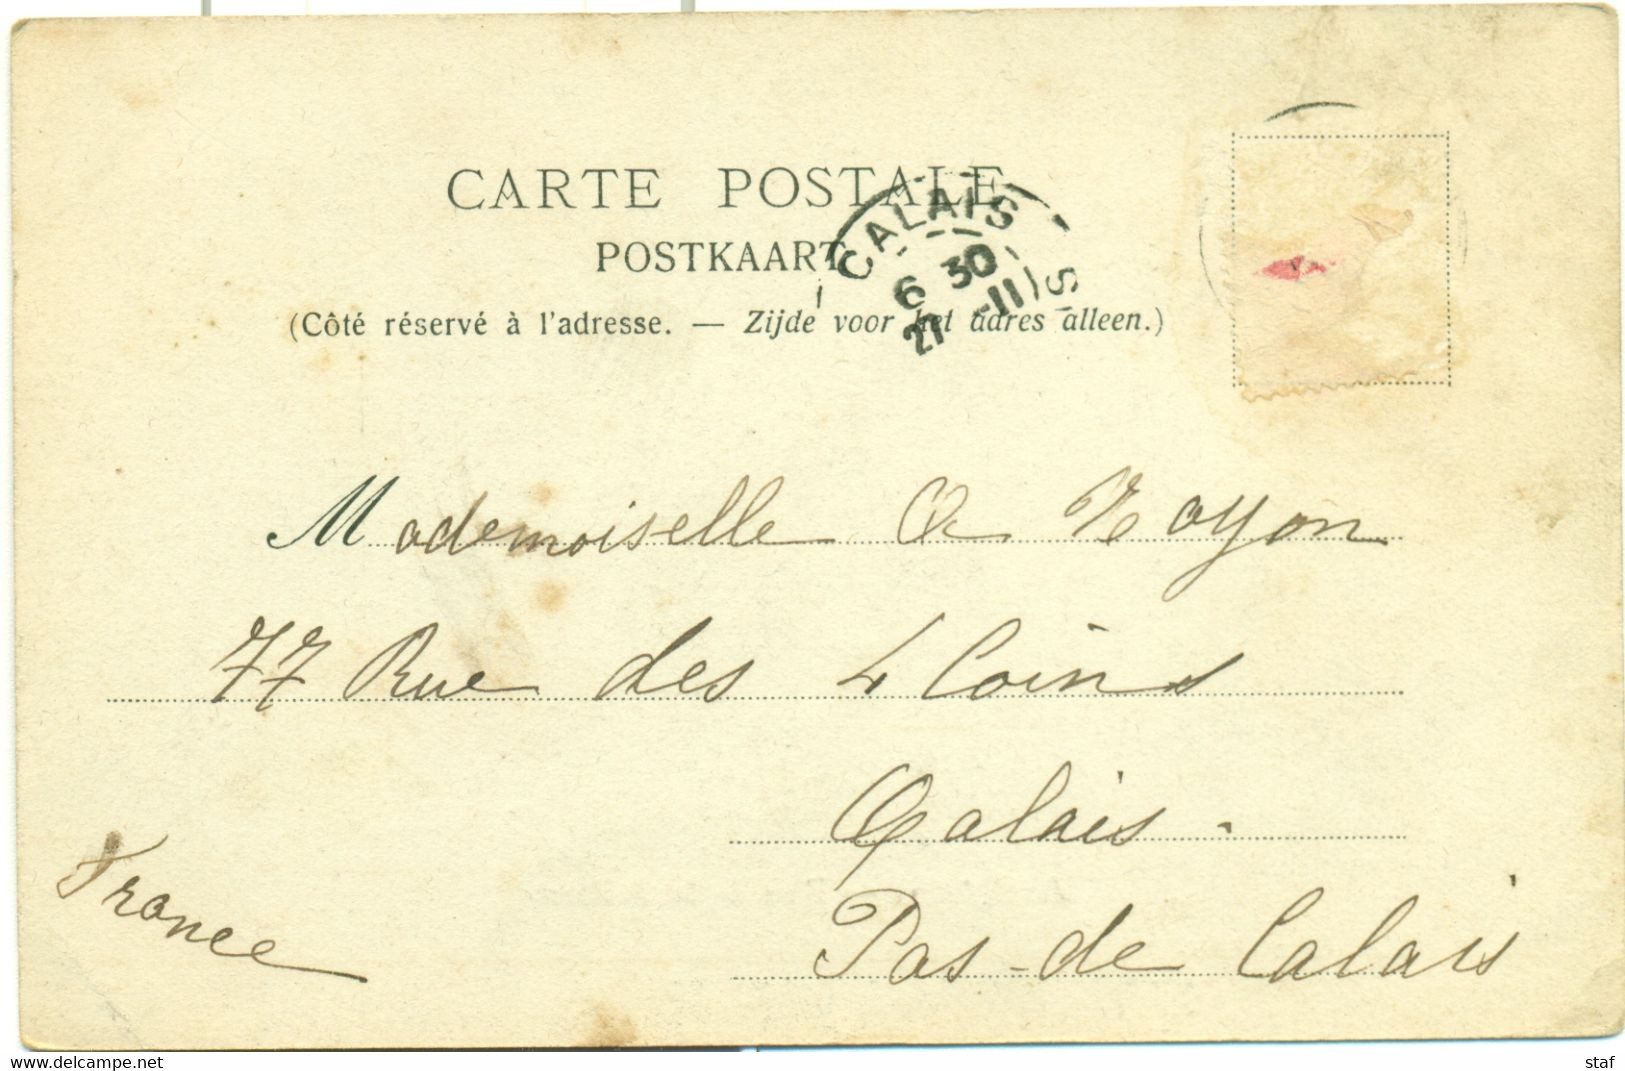 CARTE POSTALE
POSTKAART
(Côté réservé à l'adresse. — Zijde voor het adres alleen.)
CALAIS
6 30
27 -11
S
Mademoiselle
77 Rue des 4 Coins
Calais.
Pas-de Calais
France
www.delcampe.net
staf